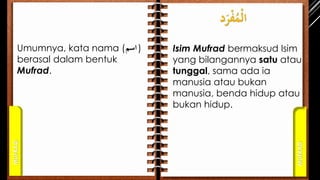 الْمُفْرَد
Umumnya, kata nama (اسم)
berasal dalam bentuk
Mufrad.
Isim Mufrad bermaksud Isim
yang bilangannya satu atau
tunggal, sama ada ia
manusia atau bukan
manusia, benda hidup atau
bukan hidup.